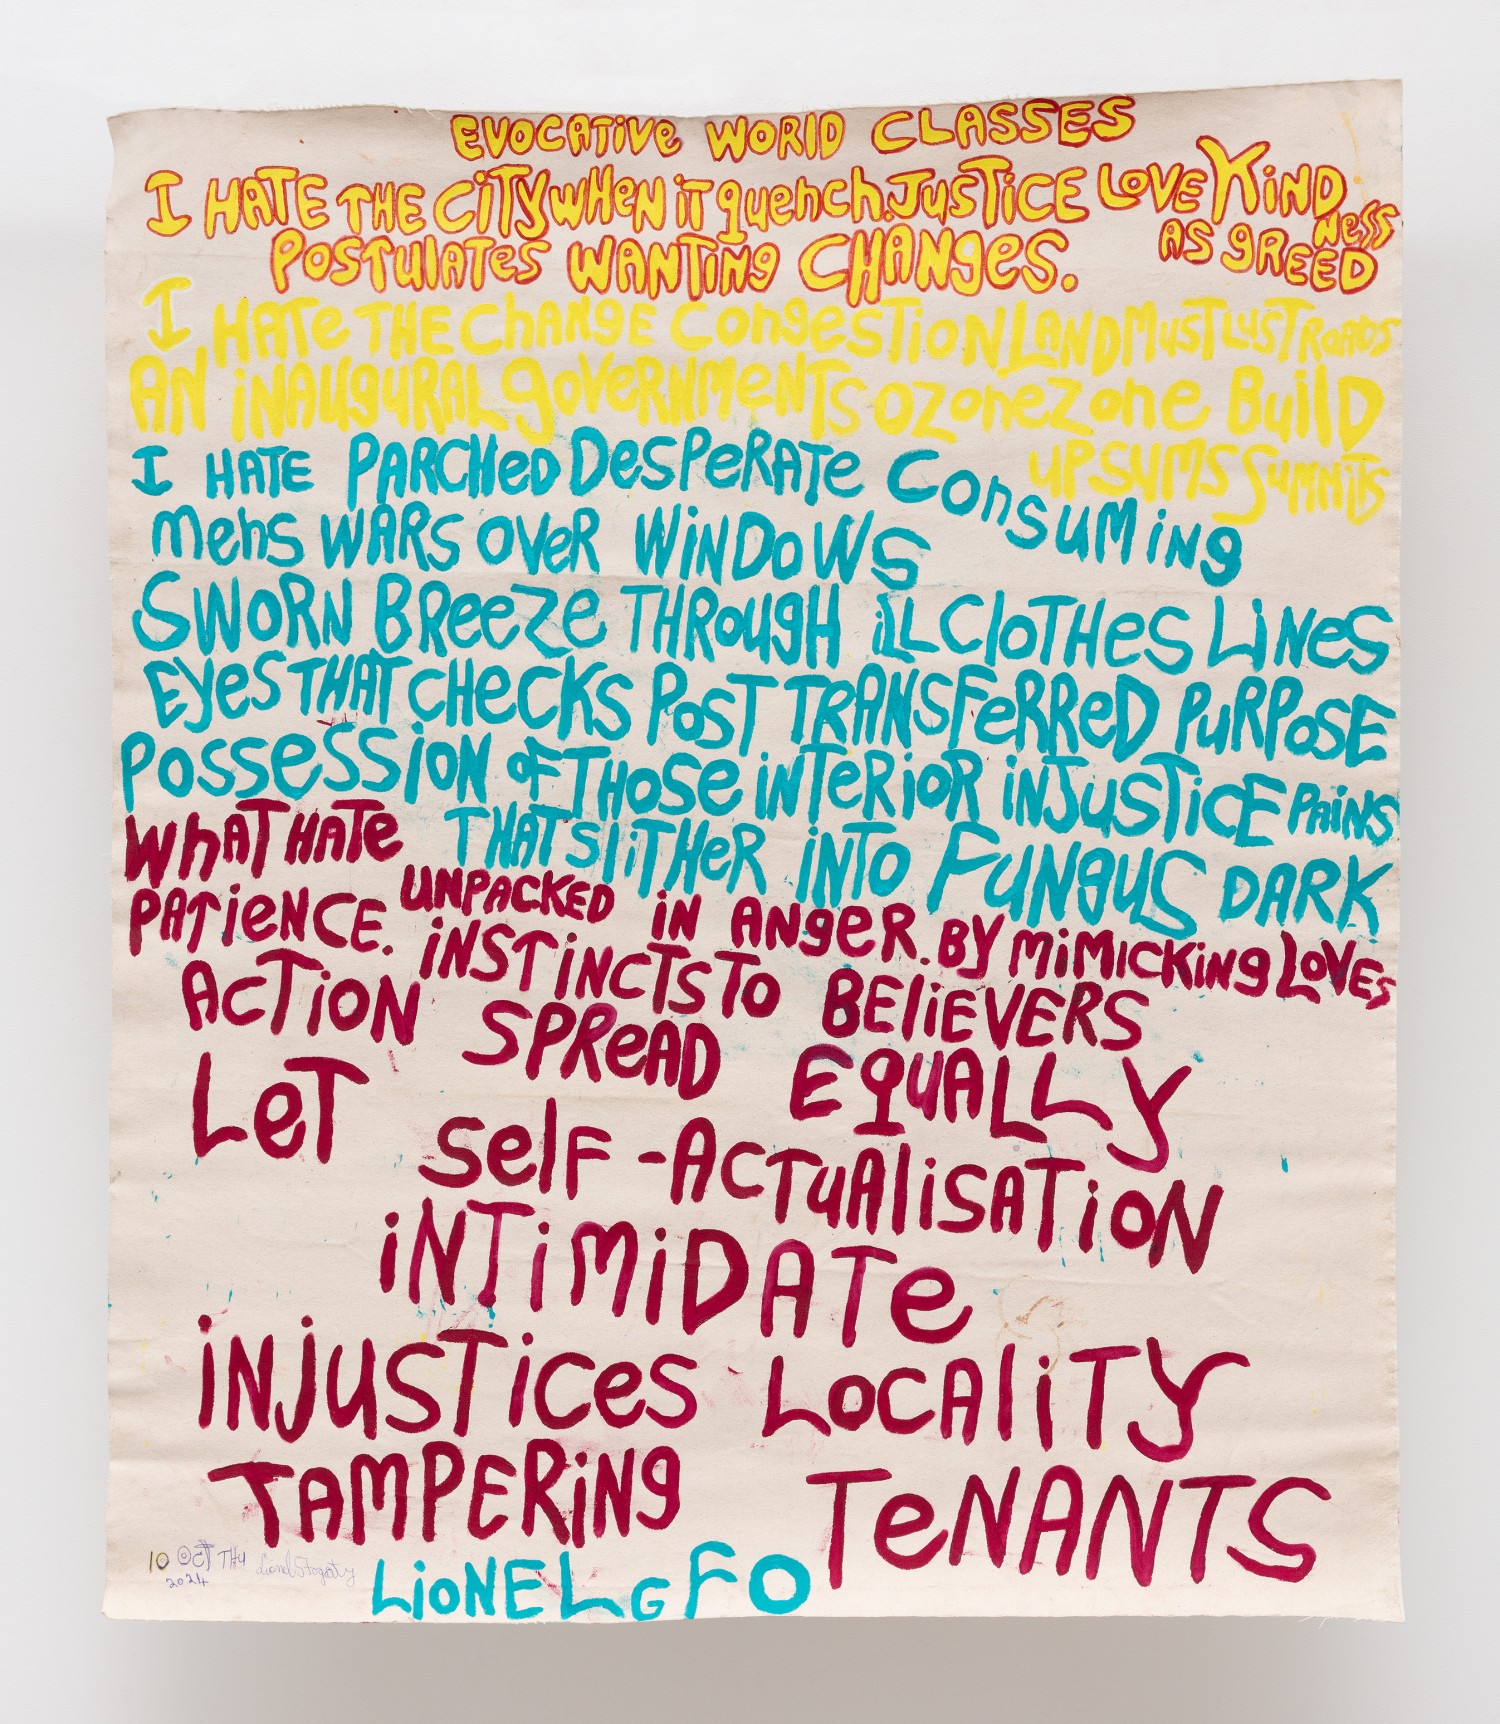 EVOCATIVE WORLD CLASSES
I HATE THE CITY WHEN iT quench. JUSTICE LOVE KIND
NESS
POSTULATES WANTING CHANGES. AS gREED
I HATE THE CHANGE CONGESTION LAND MUST LUST ROADS
AN iNAUGURAL gOVERNMENTS OZONEZONE BUILD
UPSUMS SUMMITS
I HATE PARCHED DESPERATE CONSUMING
MENS WARS OVER WINDOWS
SWORN BREEZE THROUGH iLL CLOTHES LINES
EYES THAT CHECKS POST TRANSFERRED PURPOSE
POSSESSION OF THOSE INTERIOR INJUSTICE PAINS
THAT SLITHER INTO FUNGUS DARK
WHAT HATE UNPACKED IN ANGER. BY MIMICKING LOVES
PATIENCE. INSTINCTS TO BELIEVERS
ACTION SPREAD EQUALLY
LET SELF-ACTUALISATION
INTIMIDATE
INJUSTICES LOCALITY
TAMPERING TENANTS
10 OCT THU Lionel Fogarty
2024
LIONEL G FO